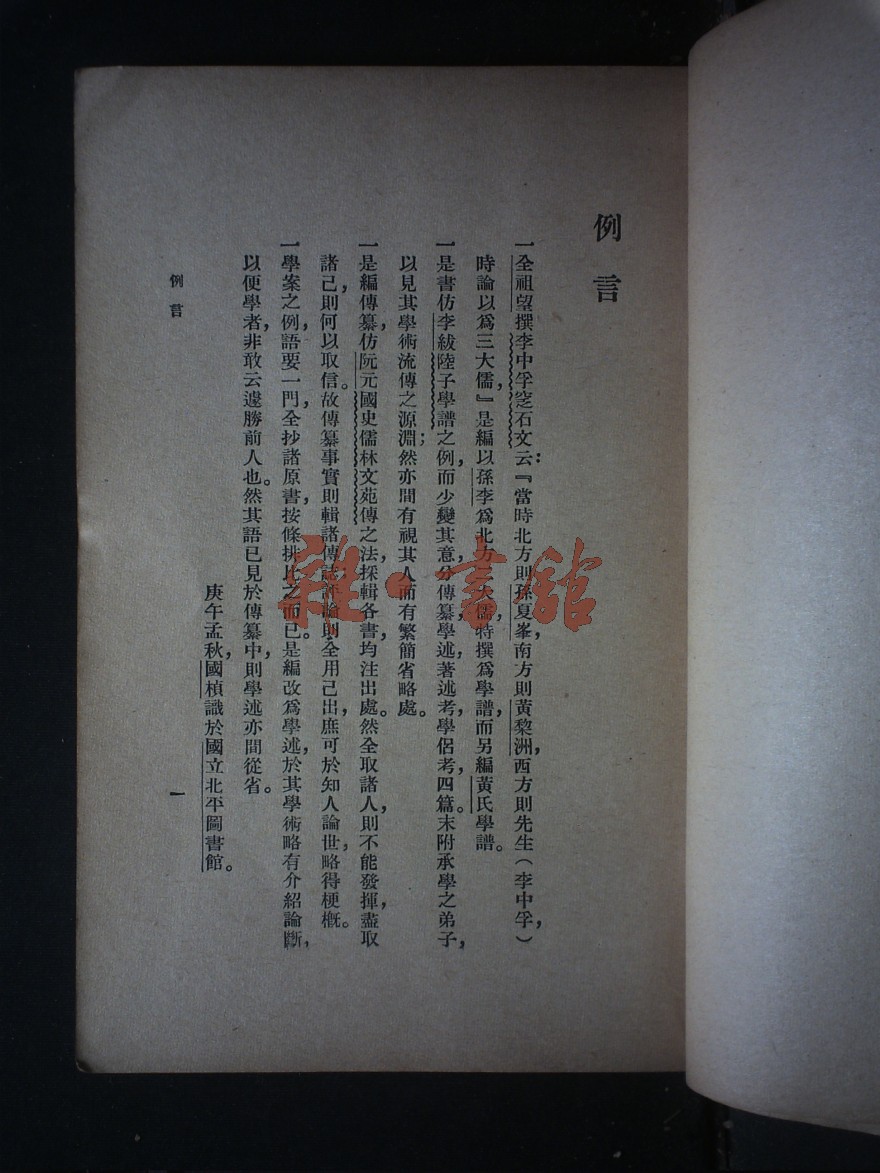 例言
一全祖望撰李中孚窆石文云：『當時北方則孫夏峯，南方則黃黎洲，西方則先生（李中孚，）
時論以爲三大儒，』是編以孫李爲北方二大儒，特撰爲學譜，而另編黃氏學譜。
一是書仿李紱陸子學譜之例，而少變其意，分傳纂，學述，著述考，學侶考，四篇。末附承學之弟子，
以見其學術流傳之源淵；然亦間有視其人而有繁簡省略處。
一是編傳纂，仿阮元國史儒林文苑傳之法，採輯各書，均注出處。然全取諸人，則不能發揮，盡取
諸己，則何以取信。故傳纂事實則輯諸傳誌，評論則全用己出，庶可於知人論世，略得梗概。
一學案之例，語要一門，全抄諸原書，按條排比之而已。是編改爲學述，於其學術略有介紹論斷，
以便學者，非敢云遽勝前人也。然其語已見於傳纂中，則學述亦間從省。
庚午孟秋，國楨識於國立北平圖書館。
例言
一
雜·書館